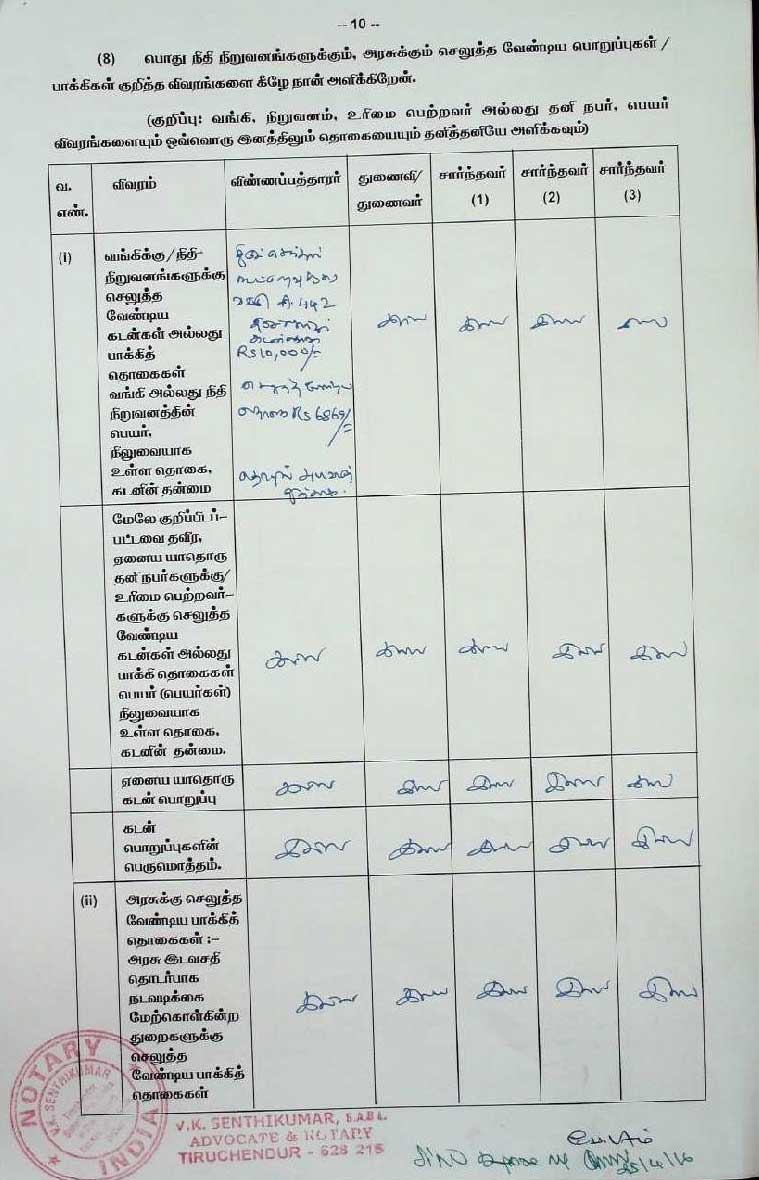 -- 10 --
(8) பொது நிதி நிறுவனங்களுக்கும், அரசுக்கும் செலுத்த வேண்டிய பொறுப்புகள் /
பாக்கிகள் குறித்த விவரங்களை கீழே நான் அளிக்கிறேன்.
(குறிப்பு: வங்கி, நிறுவனம், உரிமை பெற்றவர் அல்லது தனி நபர், பெயர்
விவரங்களையும் ஒவ்வொரு இனத்திலும் தொகையையும் தனித்தனியே அளிக்கவும்)
வ. எண்.
விவரம்
விண்ணப்பத்தாரர்
துணைவி/
துணைவர்
சார்ந்தவர்
(1)
சார்ந்தவர்
(2)
சார்ந்தவர்
(3)
(i)
வங்கிக்கு/நிதி-
நிறுவனங்களுக்கு
செலுத்த
வேண்டிய
கடன்கள் அல்லது
பாக்கித்
தொகைகள்
வங்கி அல்லது நிதி
நிறுவனத்தின்
பெயர்,
நிலுவையாக
உள்ள தொகை,
கடனின் தன்மை
Rs 10,000/-
Rs 6869/-
மேலே குறிப்பிடப்-
பட்டவை தவிர,
ஏனைய யாதொரு
தனி நபர்களுக்கு/
உரிமை பெற்றவர்-
களுக்கு செலுத்த
வேண்டிய
கடன்கள் அல்லது
பாக்கி தொகைகள்
பெயர் (பெயர்கள்)
நிலுவையாக
உள்ள தொகை,
கடனின் தன்மை.
இல்லை இல்லை இல்லை இல்லை இல்லை
ஏனைய யாதொரு
கடன் பொறுப்பு
இல்லை இல்லை இல்லை இல்லை இல்லை
கடன்
பொறுப்புகளின்
பெருமொத்தம்.
இல்லை இல்லை இல்லை இல்லை இல்லை
(ii)
அரசுக்கு செலுத்த
வேண்டிய பாக்கித்
தொகைகள் :–
அரசு இடவசதி
தொடர்பாக
நடவடிக்கை
மேற்கொள்கின்ற
துறைகளுக்கு
செலுத்த
வேண்டிய பாக்கித்
தொகைகள்
இல்லை இல்லை இல்லை இல்லை இல்லை
NOTARY
V.K. SENTHIKUMAR
INDIA
V.K. SENTHIKUMAR, B.A.B.L.
ADVOCATE & NOTARY
TIRUCHENDUR - 628 215
25/4/16